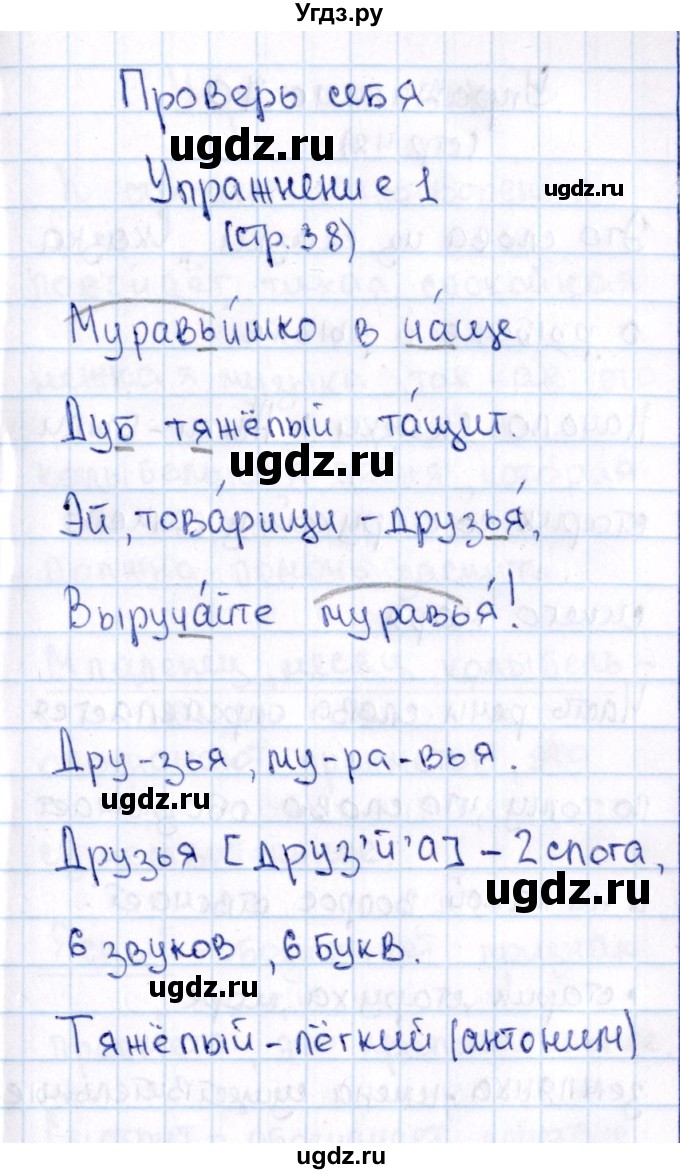 Угдз.ру
Проверь себя
ugdz.ru
Упражнение 1
ugdz.ru
(стр. 38)
Муравьи́шко в ча́ще
Дуб тяжёлый та́щит.
ugdz.ru
Эй, това́рищи - друзья́,
Выруча́йте муравья́!
Дру-зья, му-ра-вья.
ugdz.ru
Друзья [друз'й'а] - 2 слога,
ugdz.ru
6 звуков, 6 букв.
ugdz.ru
Тяжёлый - лёгкий (антоним)
ugdz.ru